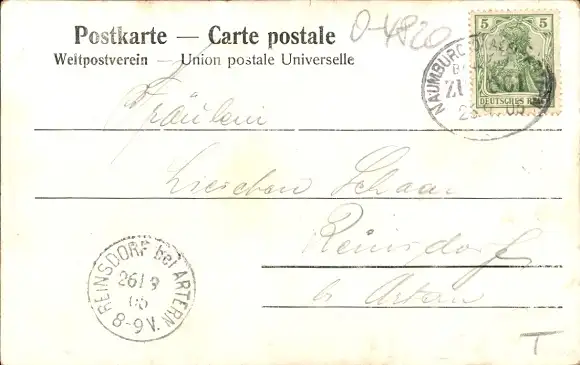 Postkarte — Carte postale
Weltpostverein — Union postale Universelle
0-4820
5 5
DEUTSCHES REICH
NAUMBURG
ZUG
Fräulein
Lieschen Schaar
Reinsdorf
b. Artern
REINSDORF bei ARTERN
26 / 9
05
8-9V.
T